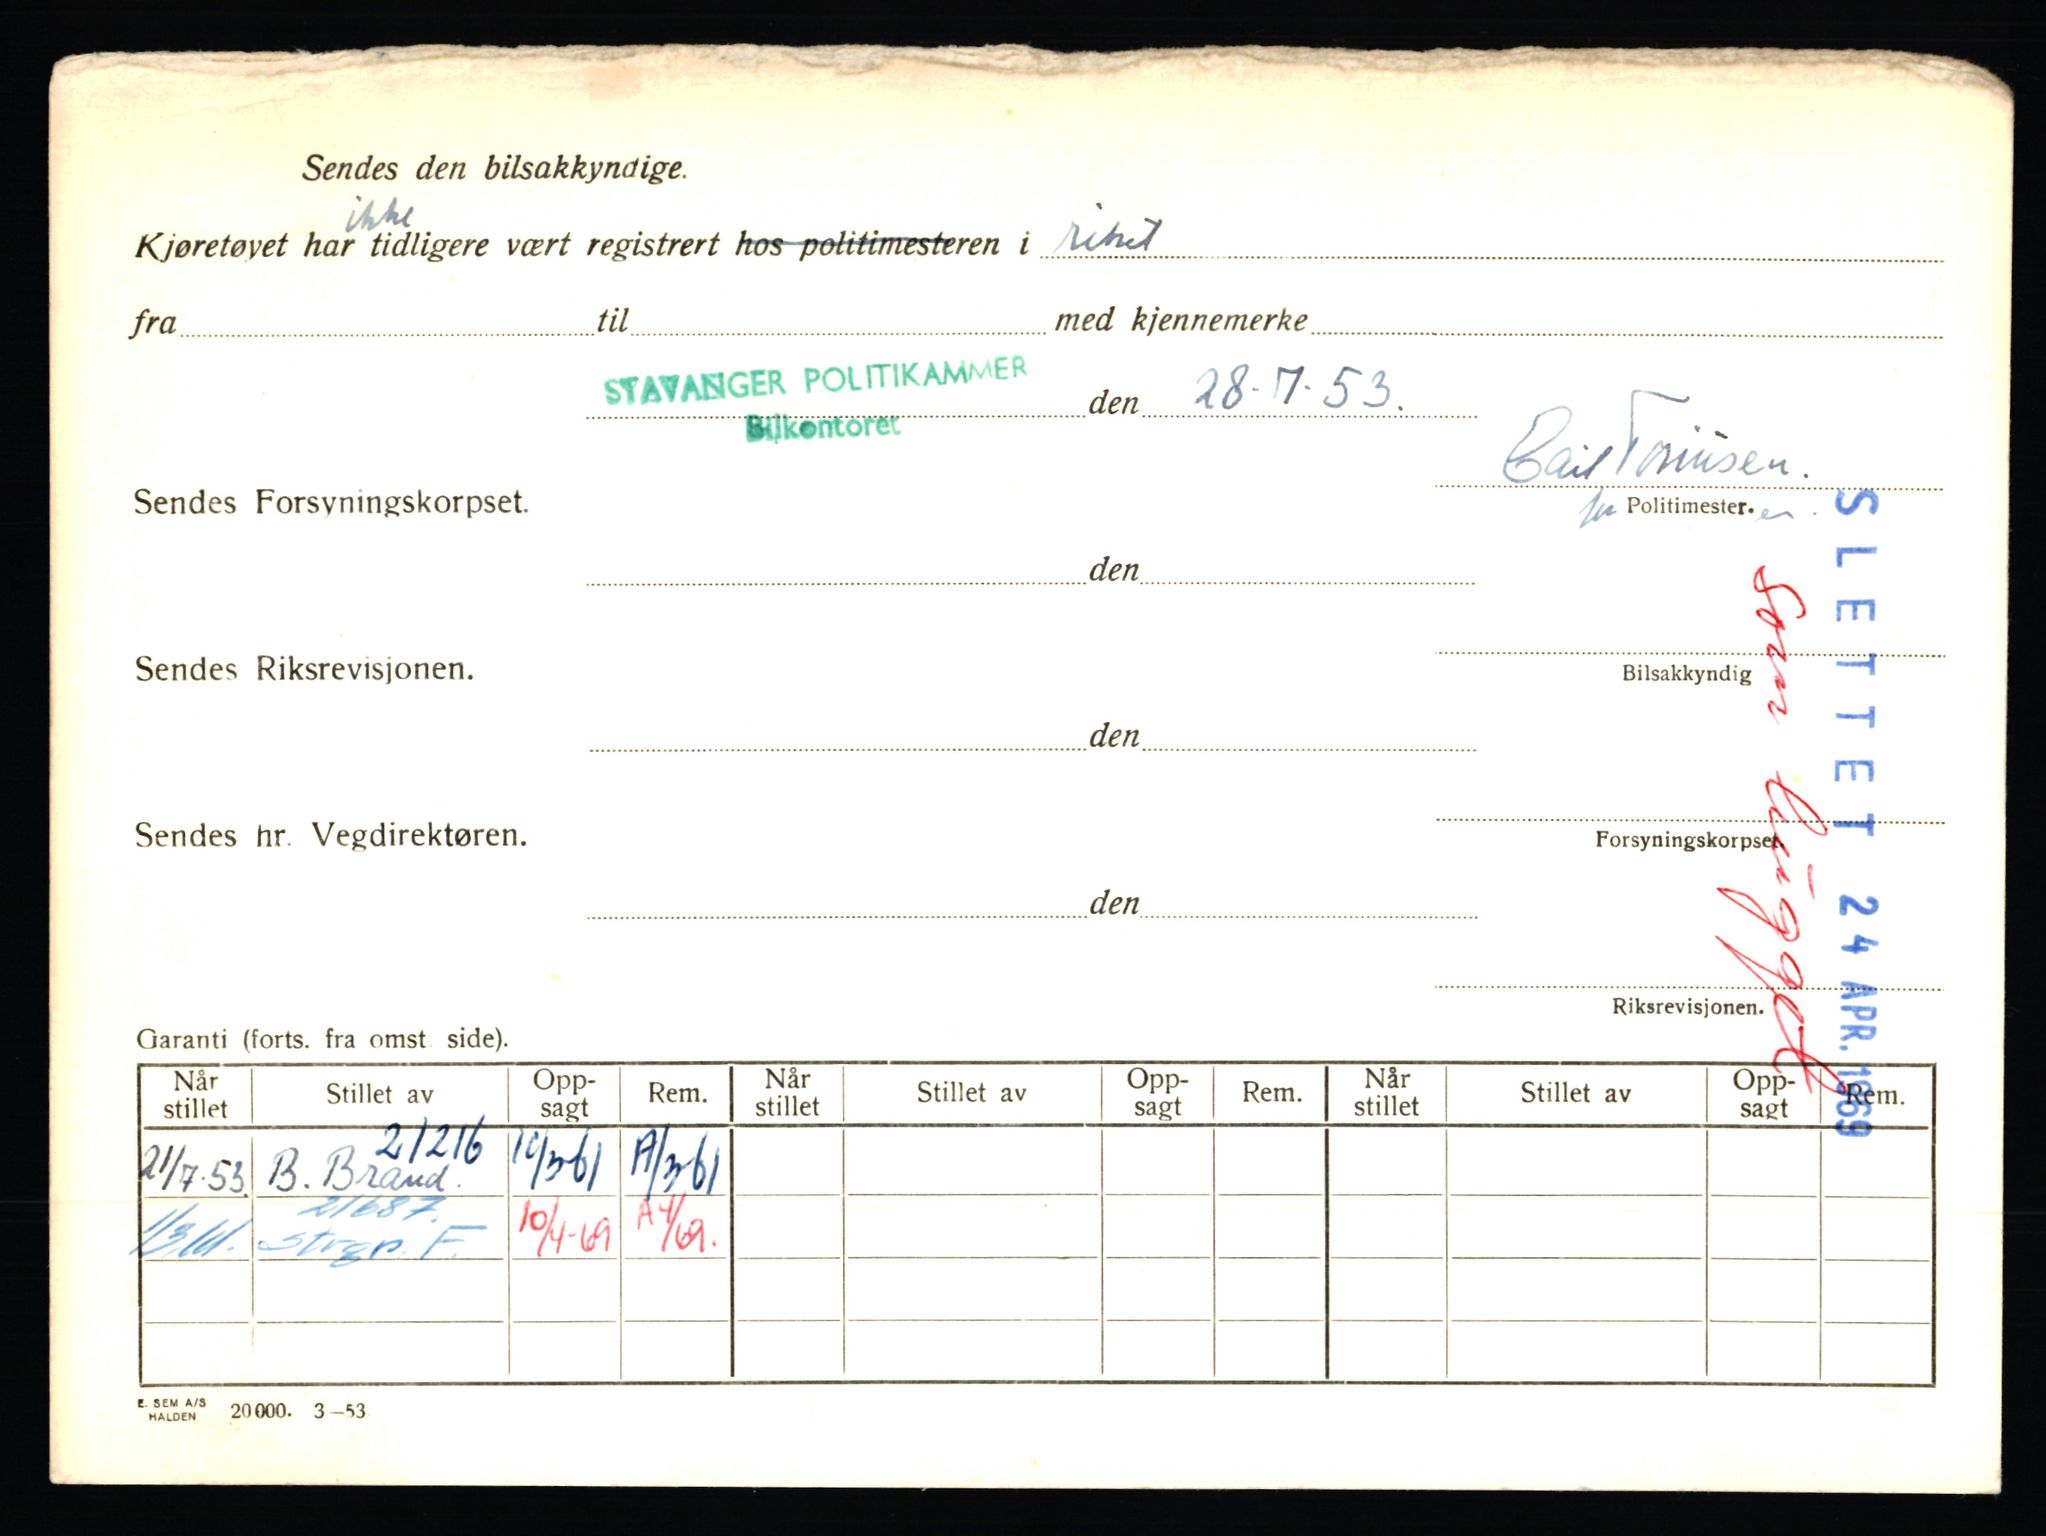 Sendes den bilsakkyndige.
ikke
Kjøretøyet har tidligere vært registrert hos politimesteren i riket
fra til med kjennemerke
STAVANGER POLITIKAMMER
Bilkontoret
den 28-7-53.
Sendes Forsyningskorpset.
for Politimester.en.
den
Sendes Riksrevisjonen.
Bilsakkyndig
den
Sendes hr. Vegdirektøren.
Forsyningskorpset.
den
Riksrevisjonen.
SLETTET 24 APR. 1969
som
Garanti (forts. fra omst. side).
Når stillet Stillet av Opp-sagt Rem. Når stillet Stillet av Opp-sagt Rem. Når stillet Stillet av Opp-sagt Rem.
21216
21/7-53. B. Brand. 10/3-61 A/3-61
21687.
1/3 61. Strgp. F. 10/4-69 A4/69.
E. SEM A/S
HALDEN 20000. 3—53